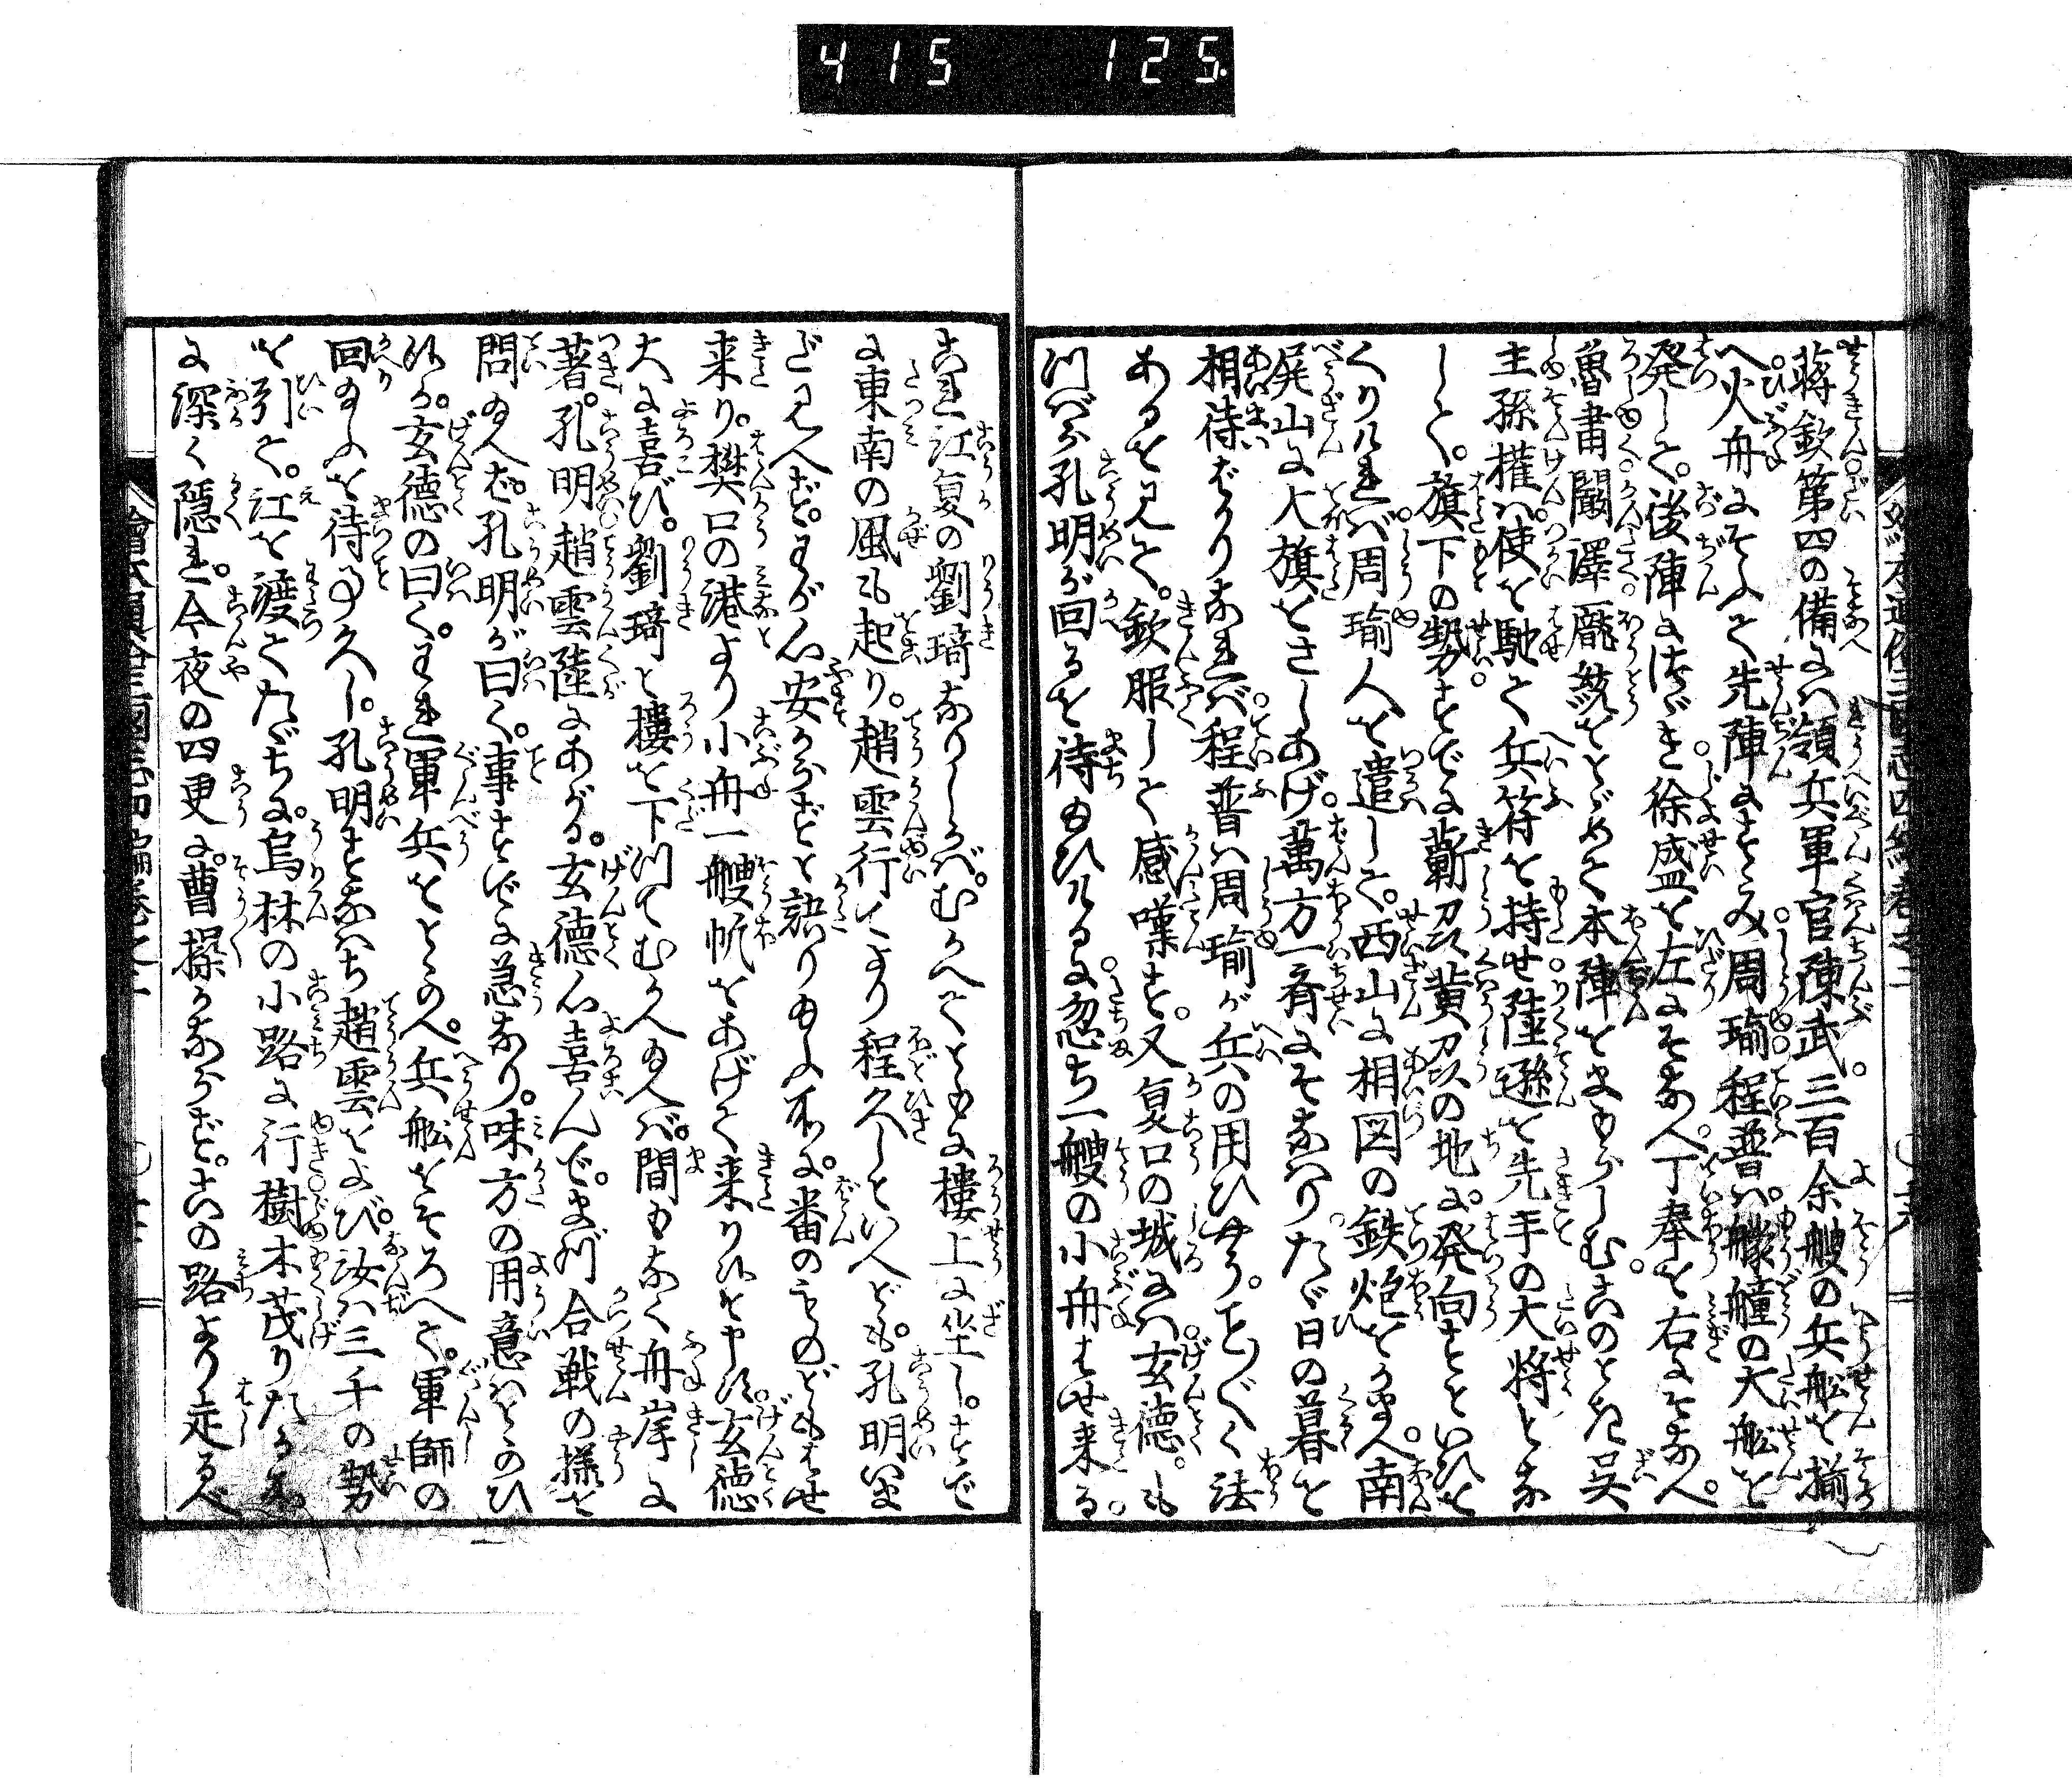 415 125.
蒋欽第四の備には領兵軍官陳武三百余艘の兵舩を揃
へ火舟にそふて先陣にすゝみ周瑜程普は艨艟の大舩を
発して。後陣につゞき徐盛を左にそなへ。丁奉を右にそなへ。
魯粛闞澤龐統をとゞめて本陣をまもらしむ。このとき呉
主孫権は使を馳て兵符を持せ陸遜を先手の大将とな
して。旗下の勢すでに蘄州黄州の地に発向すといひを
くりければ周瑜人を遣して。西山に相図の鉄炮をかまへ。南
屏山に大旗をさしあげ。萬方一斉にそなへりたゞ日の暮を
相待ばかりなれば程普は周瑜が兵の用ひやう。こと〴〵く法
あるを見て。欽服して感嘆す。又夏口の城には玄徳。も
つぱら孔明が回るを待ゐひけるに忽ち一艘の小舟はせ来る。
これ江夏の劉琦なりしかば。むかへてともに樓上に坐し。すで
に東南の風も起り。趙雲行てより程久しといへども。孔明いま
だ見へず。わが心安からずと語りゐふ所に。番のものどもはせ
来り。樊口の港より小舟一艘帆をあげて来り候と申す。玄徳
大に喜び。劉琦と樓を下つてむかへゐへば。間もなく舟岸に
著。孔明趙雲陸にあがる。玄徳心喜んで。まづ合戦の様を
問ゐへば。孔明が曰く。事すでに急なり。味方の用意はとゝのひ
候か。玄徳の曰く。われ軍兵をとゝのへ。兵舩をそろへて。軍師の
回ゐふを待事久し。孔明すなはち趙雲をよび。汝は三千の勢
を引て。江を渡てたゞちに。烏林の小路に行樹木茂りたる所
に深く隠れ。今夜の四更に。曹操かならず。此の路より走るべ